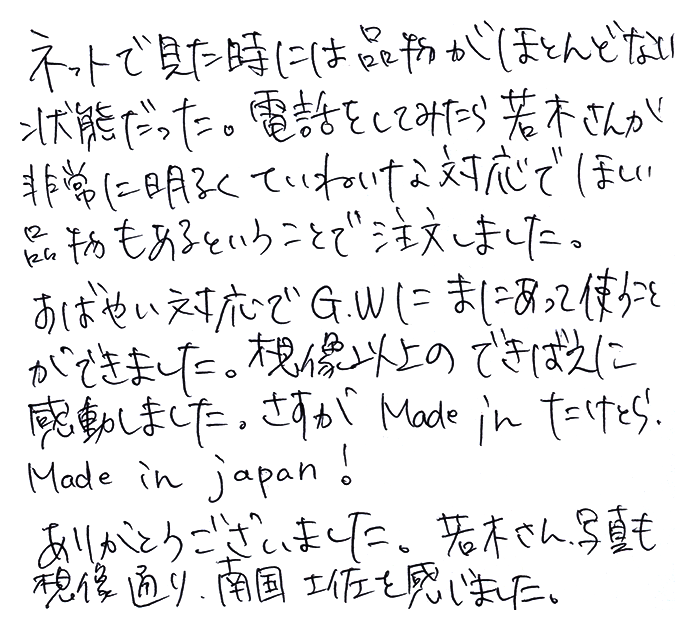 ネットで見た時には品物がほとんどない
状態だった。電話をしてみたら若木さんが
非常に明るくていねいな対応でほしい
品物もあるということで注文しました。
すばやい対応でG.Wにまにあって使うこと
ができました。想像以上のできばえに
感動しました。さすが Made in たけとら.
Made in japan!
ありがとうございました。若木さん、写真も
想像通り、南国土佐を感じました。